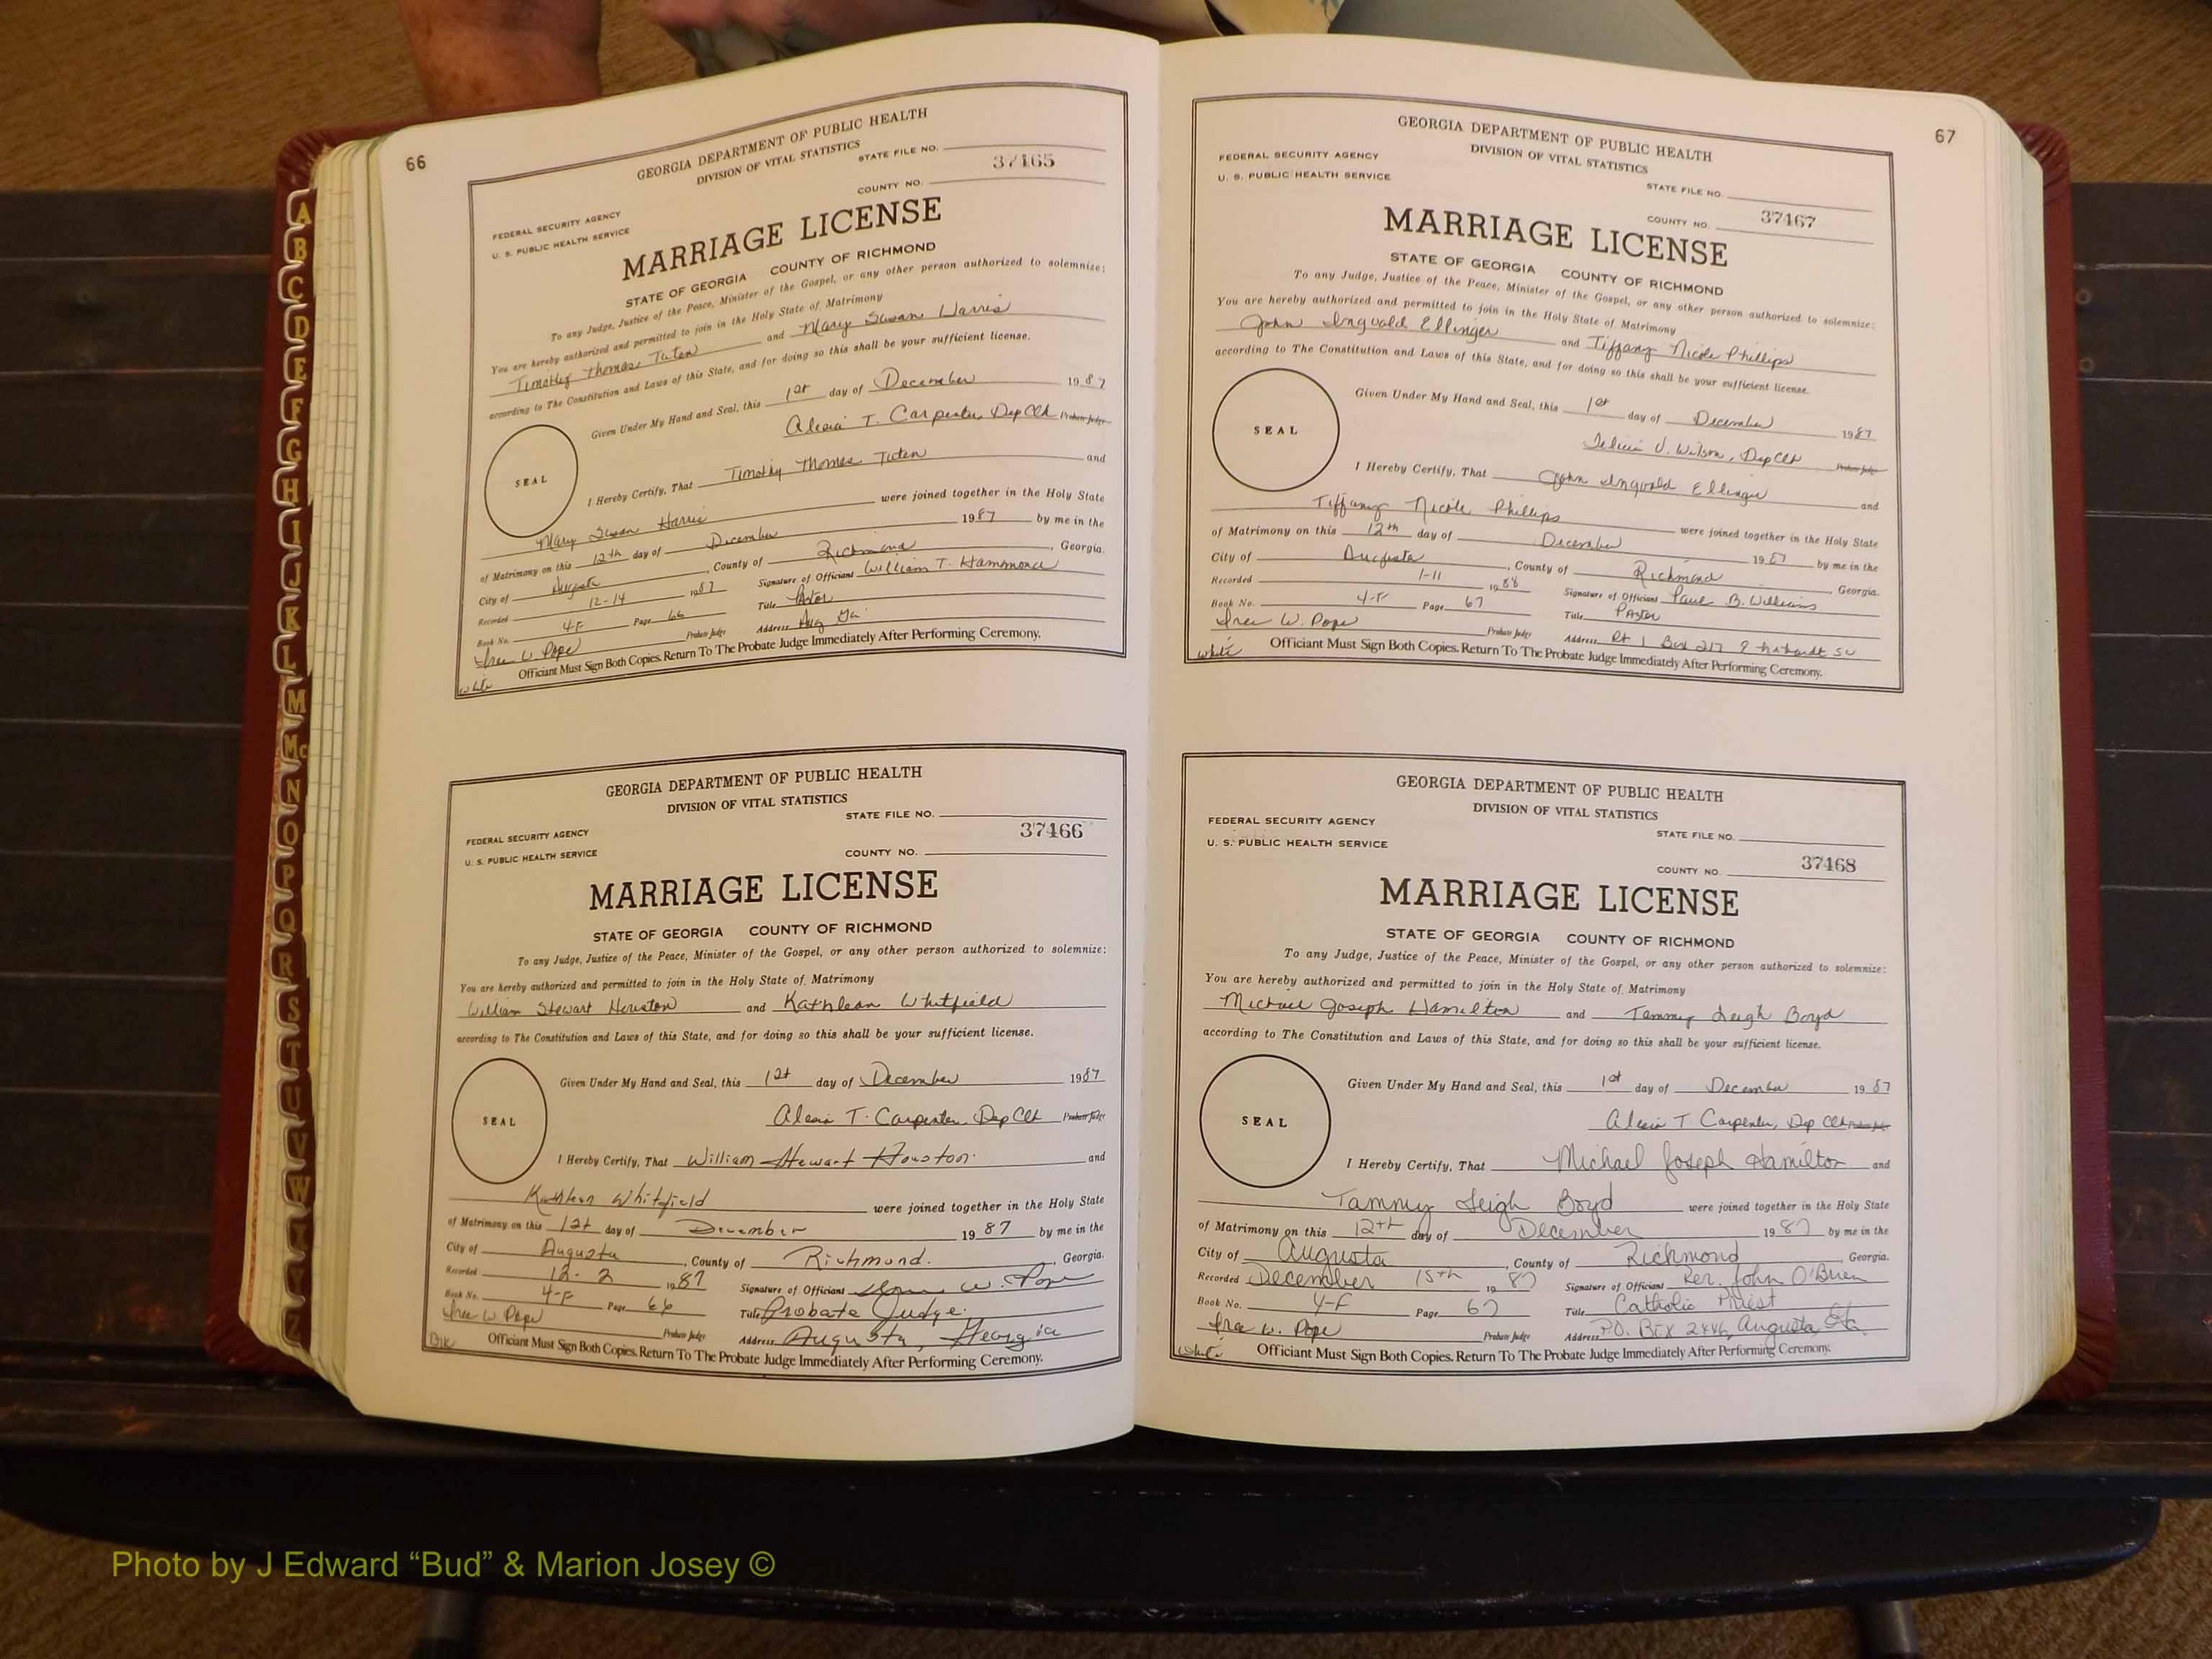 66
GEORGIA DEPARTMENT OF PUBLIC HEALTH
DIVISION OF VITAL STATISTICS
STATE FILE NO.
37465
COUNTY NO.
FEDERAL SECURITY AGENCY
U. S. PUBLIC HEALTH SERVICE
MARRIAGE LICENSE
STATE OF GEORGIA COUNTY OF RICHMOND
To any Judge, Justice of the Peace, Minister of the Gospel, or any other person authorized to solemnize:
You are hereby authorized and permitted to join in the Holy State of Matrimony
Timothy Thomas Tuten and Mary Susan Harris
according to The Constitution and Laws of this State, and for doing so this shall be your sufficient license.
Given Under My Hand and Seal, this 1st day of December 1987
Alecia T. Carpenter, Dep Clk Probate Judge
SEAL
I Hereby Certify, That Timothy Thomas Tuten and
Mary Susan Harris were joined together in the Holy State
of Matrimony on this 12th day of December 1987 by me in the
City of Augusta, County of Richmond, Georgia.
Recorded 12-14 1987 Signature of Officiant William T. Hammond
Book No. 4-F Page 66 Title Pastor
W. Pope Probate Judge Address Aug Ga
white Officiant Must Sign Both Copies. Return To The Probate Judge Immediately After Performing Ceremony.
GEORGIA DEPARTMENT OF PUBLIC HEALTH
DIVISION OF VITAL STATISTICS
STATE FILE NO.
FEDERAL SECURITY AGENCY
37466
U. S. PUBLIC HEALTH SERVICE
COUNTY NO.
MARRIAGE LICENSE
STATE OF GEORGIA COUNTY OF RICHMOND
To any Judge, Justice of the Peace, Minister of the Gospel, or any other person authorized to solemnize:
You are hereby authorized and permitted to join in the Holy State of Matrimony
William Stewart Houston and Kathleen Whitfield
according to The Constitution and Laws of this State, and for doing so this shall be your sufficient license.
Given Under My Hand and Seal, this 1st day of December 1987
Alecia T. Carpenter, Dep Clk Probate Judge
SEAL
I Hereby Certify, That William Stewart Houston and
Kathleen Whitefield were joined together in the Holy State
of Matrimony on this 1st day of December 1987 by me in the
City of Augusta, County of Richmond, Georgia.
Recorded 12-2 1987 Signature of Officiant W. Pope
Book No. 4-F Page 66 Title Probate Judge
W. Pope Probate Judge Address Augusta, Georgia
Officiant Must Sign Both Copies. Return To The Probate Judge Immediately After Performing Ceremony.
67
GEORGIA DEPARTMENT OF PUBLIC HEALTH
DIVISION OF VITAL STATISTICS
FEDERAL SECURITY AGENCY
U. S. PUBLIC HEALTH SERVICE
STATE FILE NO.
37467
COUNTY NO.
MARRIAGE LICENSE
STATE OF GEORGIA COUNTY OF RICHMOND
To any Judge, Justice of the Peace, Minister of the Gospel, or any other person authorized to solemnize:
You are hereby authorized and permitted to join in the Holy State of Matrimony
John Ingvald Ellinger and Tiffany Nicole Phillips
according to The Constitution and Laws of this State, and for doing so this shall be your sufficient license.
Given Under My Hand and Seal, this 1st day of December 1987
Felicia V. Wilson, Dep Clk Probate Judge
SEAL
I Hereby Certify, That John Ingvald Ellinger and
Tiffany Nicole Phillips were joined together in the Holy State
of Matrimony on this 12th day of December 1987 by me in the
City of Augusta, County of Richmond, Georgia.
Recorded 1-11 1988 Signature of Officiant Paul B. Williams
Book No. 4-F Page 67 Title Pastor
W. Pope Probate Judge Address Rt 1 Box 217
white Officiant Must Sign Both Copies. Return To The Probate Judge Immediately After Performing Ceremony.
GEORGIA DEPARTMENT OF PUBLIC HEALTH
DIVISION OF VITAL STATISTICS
FEDERAL SECURITY AGENCY
STATE FILE NO.
U. S. PUBLIC HEALTH SERVICE
37468
COUNTY NO.
MARRIAGE LICENSE
STATE OF GEORGIA COUNTY OF RICHMOND
To any Judge, Justice of the Peace, Minister of the Gospel, or any other person authorized to solemnize:
You are hereby authorized and permitted to join in the Holy State of Matrimony
Michael Joseph Hamilton and Tammy Leigh Boyd
according to The Constitution and Laws of this State, and for doing so this shall be your sufficient license.
Given Under My Hand and Seal, this 1st day of December 1987
Alecia T Carpenter, Dep Clk Probate Judge
SEAL
I Hereby Certify, That Michael Joseph Hamilton and
Tammy Leigh Boyd were joined together in the Holy State
of Matrimony on this 12th day of December 1987 by me in the
City of Augusta, County of Richmond, Georgia.
Recorded December 15th 1987 Signature of Officiant Rev. John O'Brien
Book No. 4-F Page 67 Title Catholic Priest
W. Pope Probate Judge Address P.O. Box 2446, Augusta, Ga.
white Officiant Must Sign Both Copies. Return To The Probate Judge Immediately After Performing Ceremony.
A
B
C
D
E
F
G
H
I
J
K
L
M
Mc
N
O
P
Q
R
S
T
U
V
W
X
Y
Z
Photo by J Edward “Bud” & Marion Josey ©